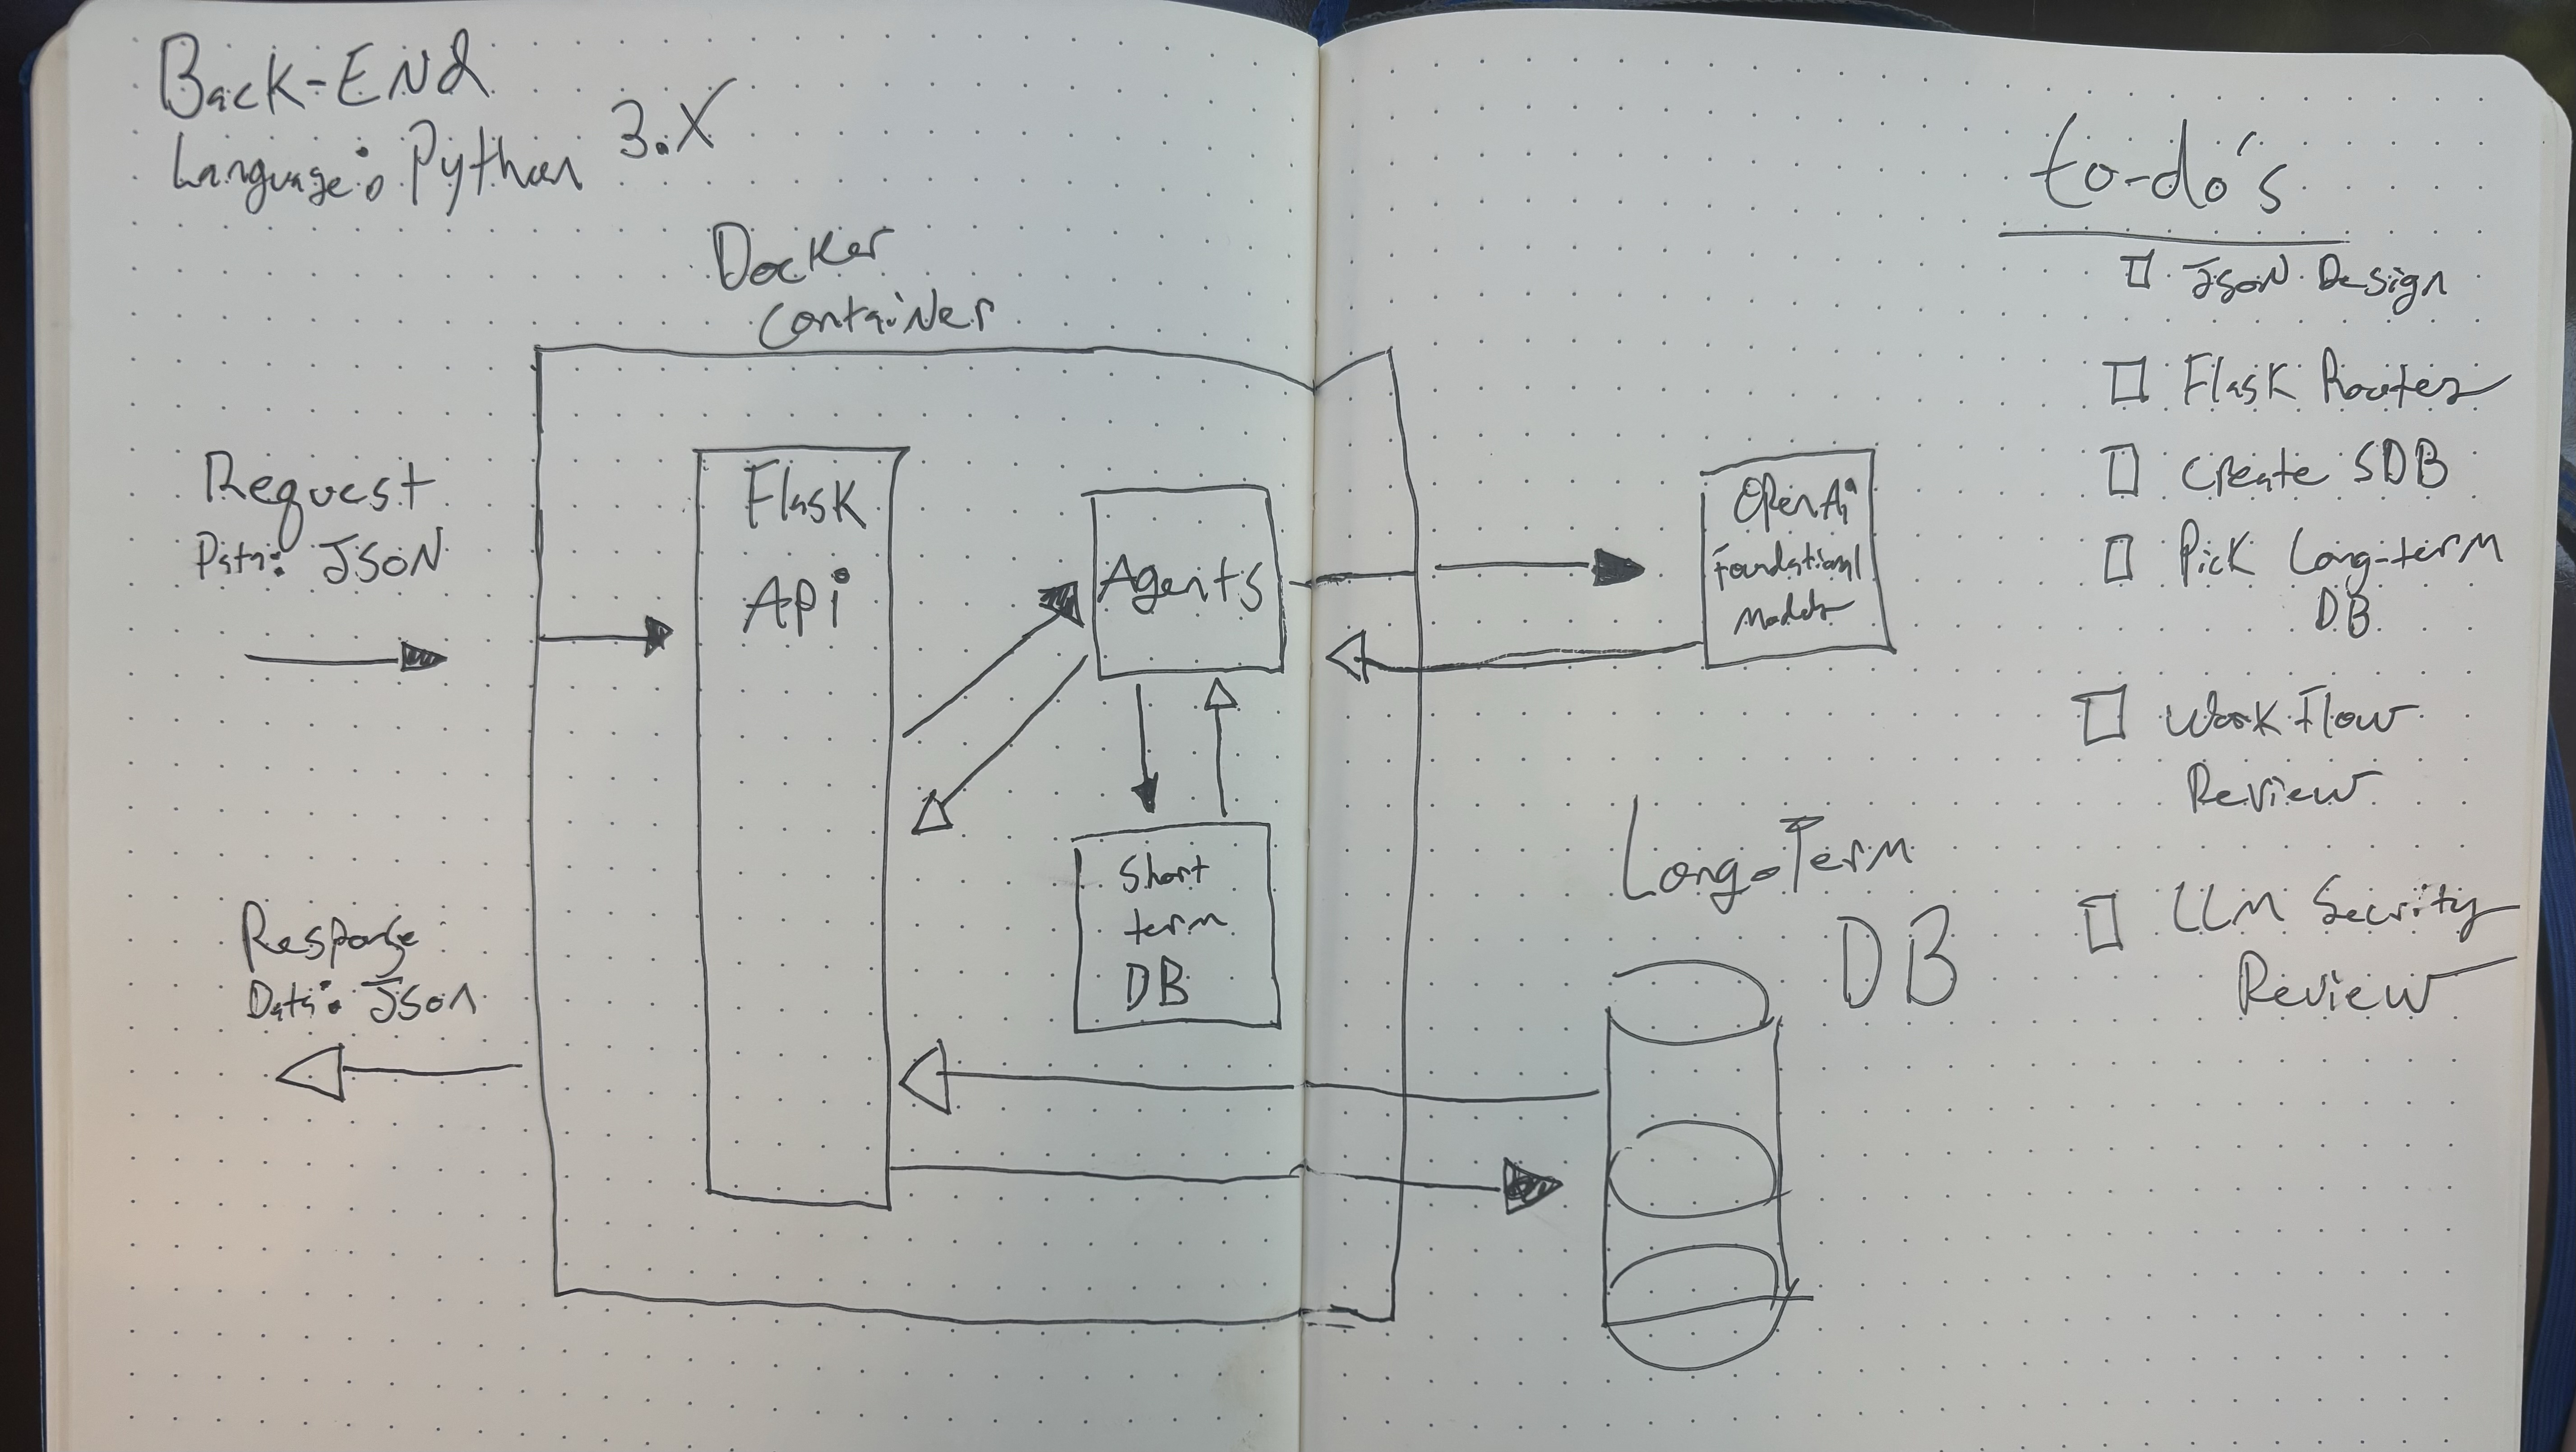 Back-END
Language: Python 3.X
Docker
Container
Request
Data: JSON
Flask
Api
Agents
Short
term
DB
Response
Data: Json
OpenAi
Foundational
Models
Long-Term
DB
to-do's
JSON Design
Flask Routes
Create SDB
Pick Long-term
DB
Work Flow
Review
LLM Security
Review